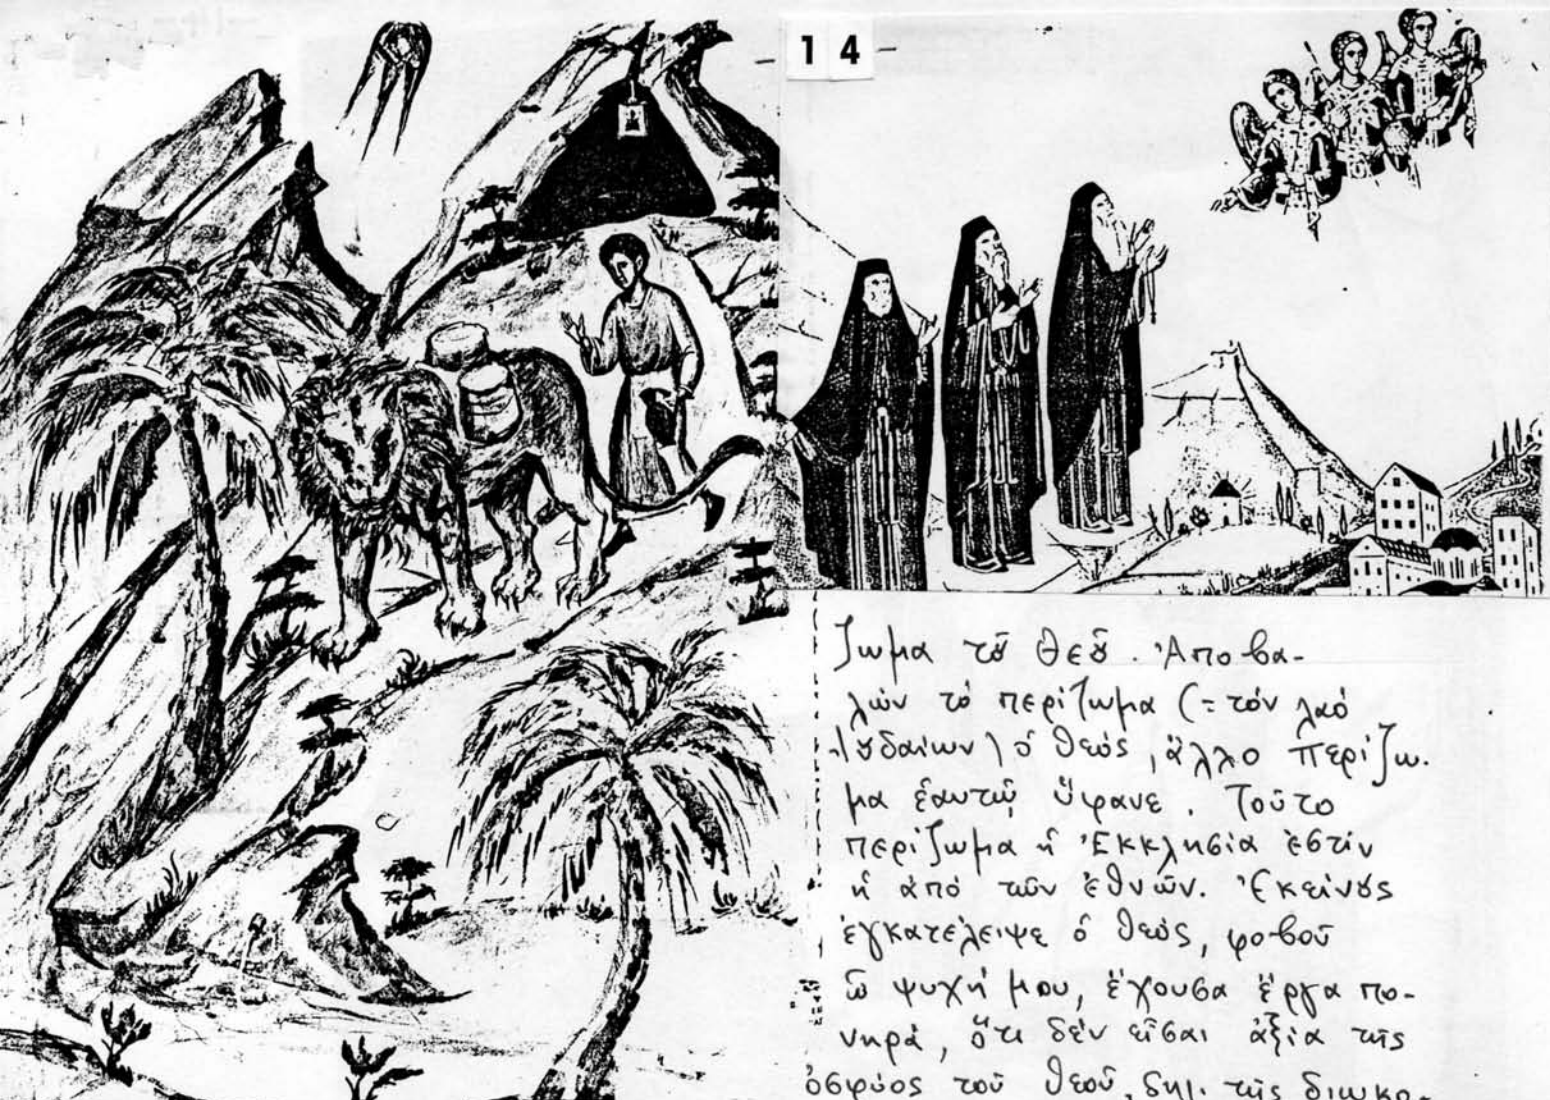 14
ζωμα τȣ͂ Θεȣ͂. Ἀποβα-
λών τό περίζωμα (= τόν λαό
Ἰȣδαίων) ὁ Θεός, ἄλλο περίζω-
μα ἑαυτῷ ὕφανε. Τοῦτο
περίζωμα ἡ Ἐκκλησία ἐστίν
ἡ ἀπό τῶν ἐθνῶν. Ἐκείνȣς
ἐγκατέλειψε ὁ Θεός, φοβοῦ
ὦ ψυχή μου, ἔχουσα ἔργα πο-
νηρά, ὅτι δέν εἶσαι ἀξία τῆς
ὀσφύος τοῦ Θεοῦ, δηλ. τῆς